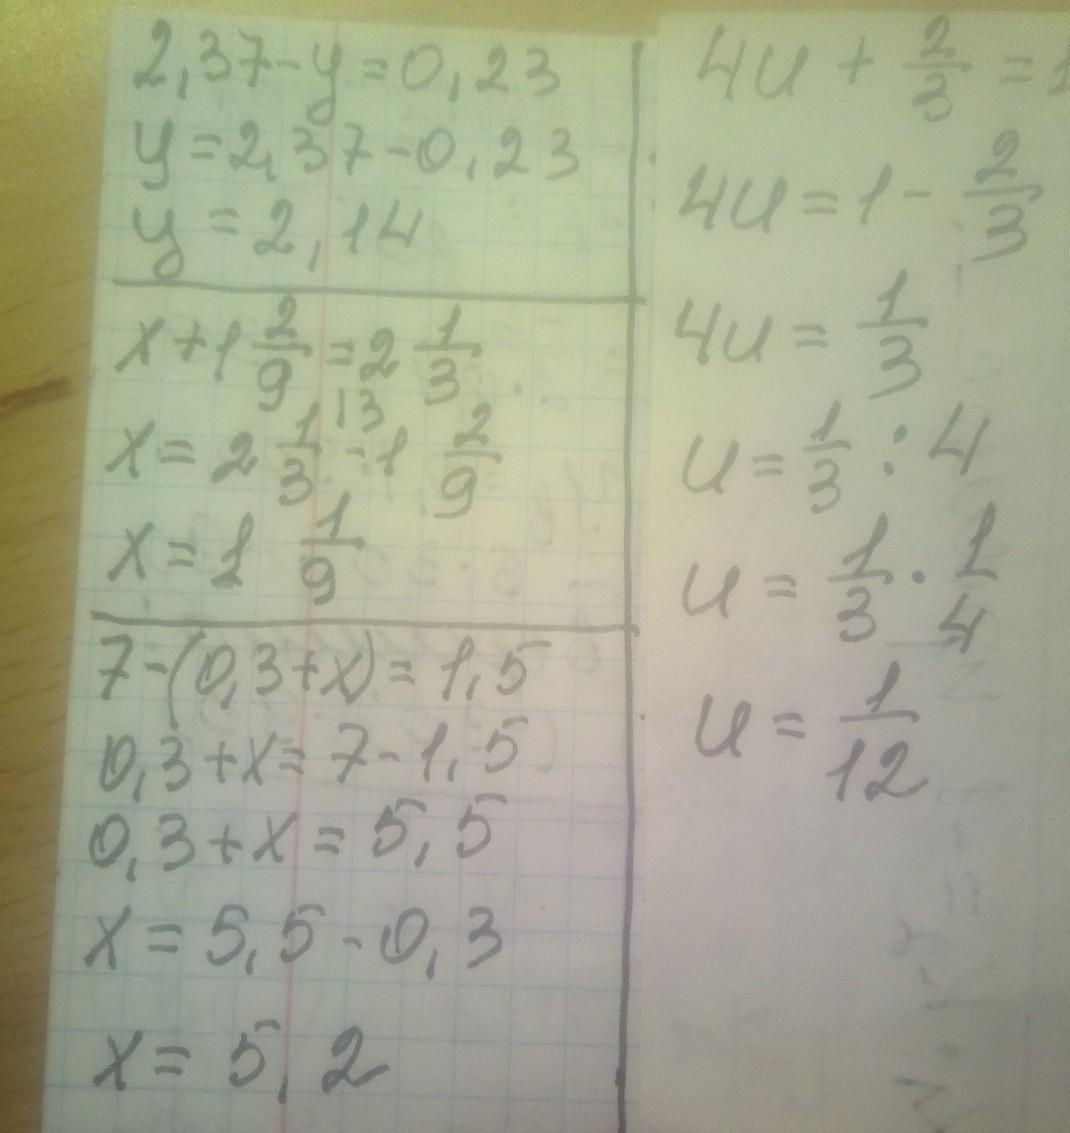 2,37-y=0,23
y=2,37-0,23
y=2,14
x+1 2/9=2 1/3
13
x=2 1/3-1 2/9
x=1 1/9
7-(0,3+x)=1,5
0,3+x=7-1,5
0,3+x=5,5
x=5,5-0,3
x=5,2
4u+2/3=1
4u=1-2/3
4u=1/3
u=1/3:4
u=1/3·1/4
u=1/12